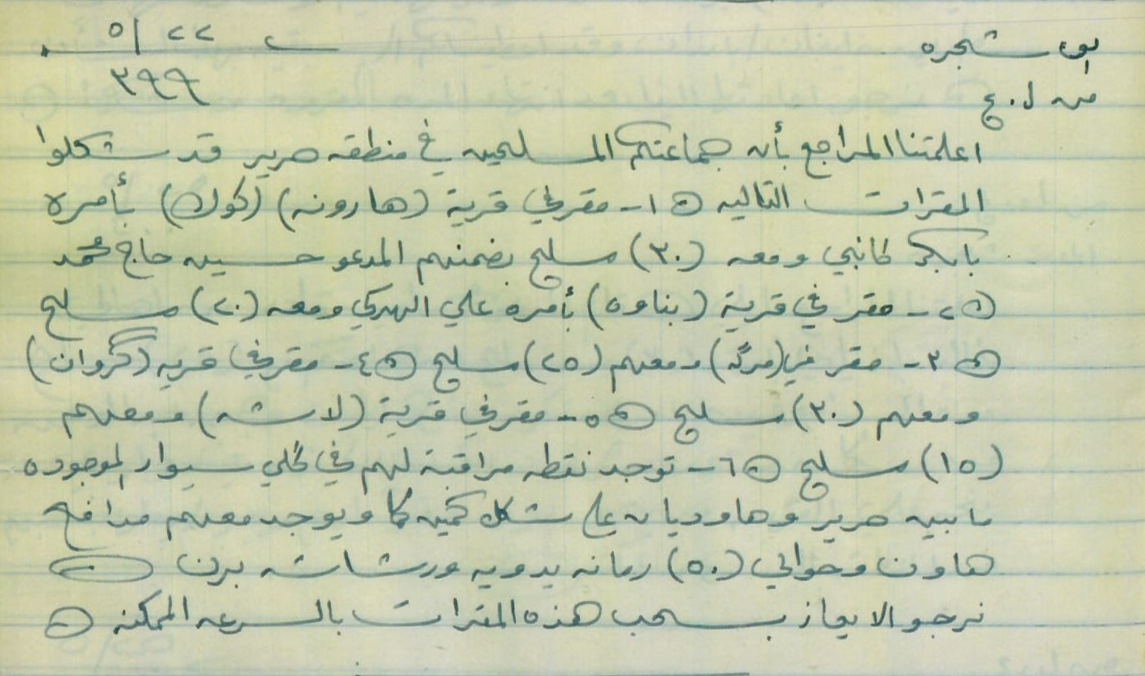 بو شجره
ت ٢٢ / ٥
٣٩٩
من ل.ع
اعلمتنا المراجع بأن جماعتكم المسلحين في منطقه حرير قد شكلوا
المقرات التاليه ١- مقر في قرية (هارونه) (كوك) بأمرة
بابكر ومعه (٣٠) مسلح بضمنهم المدعو حسين حاج محمد
٢- مقر في قرية (بناوه) بأمره علي الهركي ومعه (٢٠) مسلح
٣- مقر في (مرگه) ومعهم (٢٥) مسلح ٤- مقر في قريه (گروان)
ومعهم (٣٠) مسلح ٥- مقر في قرية (لاشه) ومعهم
(١٥) مسلح ٦- توجد نقطه مراقبة لهم في گلي الموجوده
ما بين حرير وهاوديان على شكل كمين كما ويوجد معهم مدافع
هاون وحوالي (٥٠) رمانه يدويه ورشاشه برن
نرجو الايعاز بسحب هذه المقرات بالسرعه الممكنه